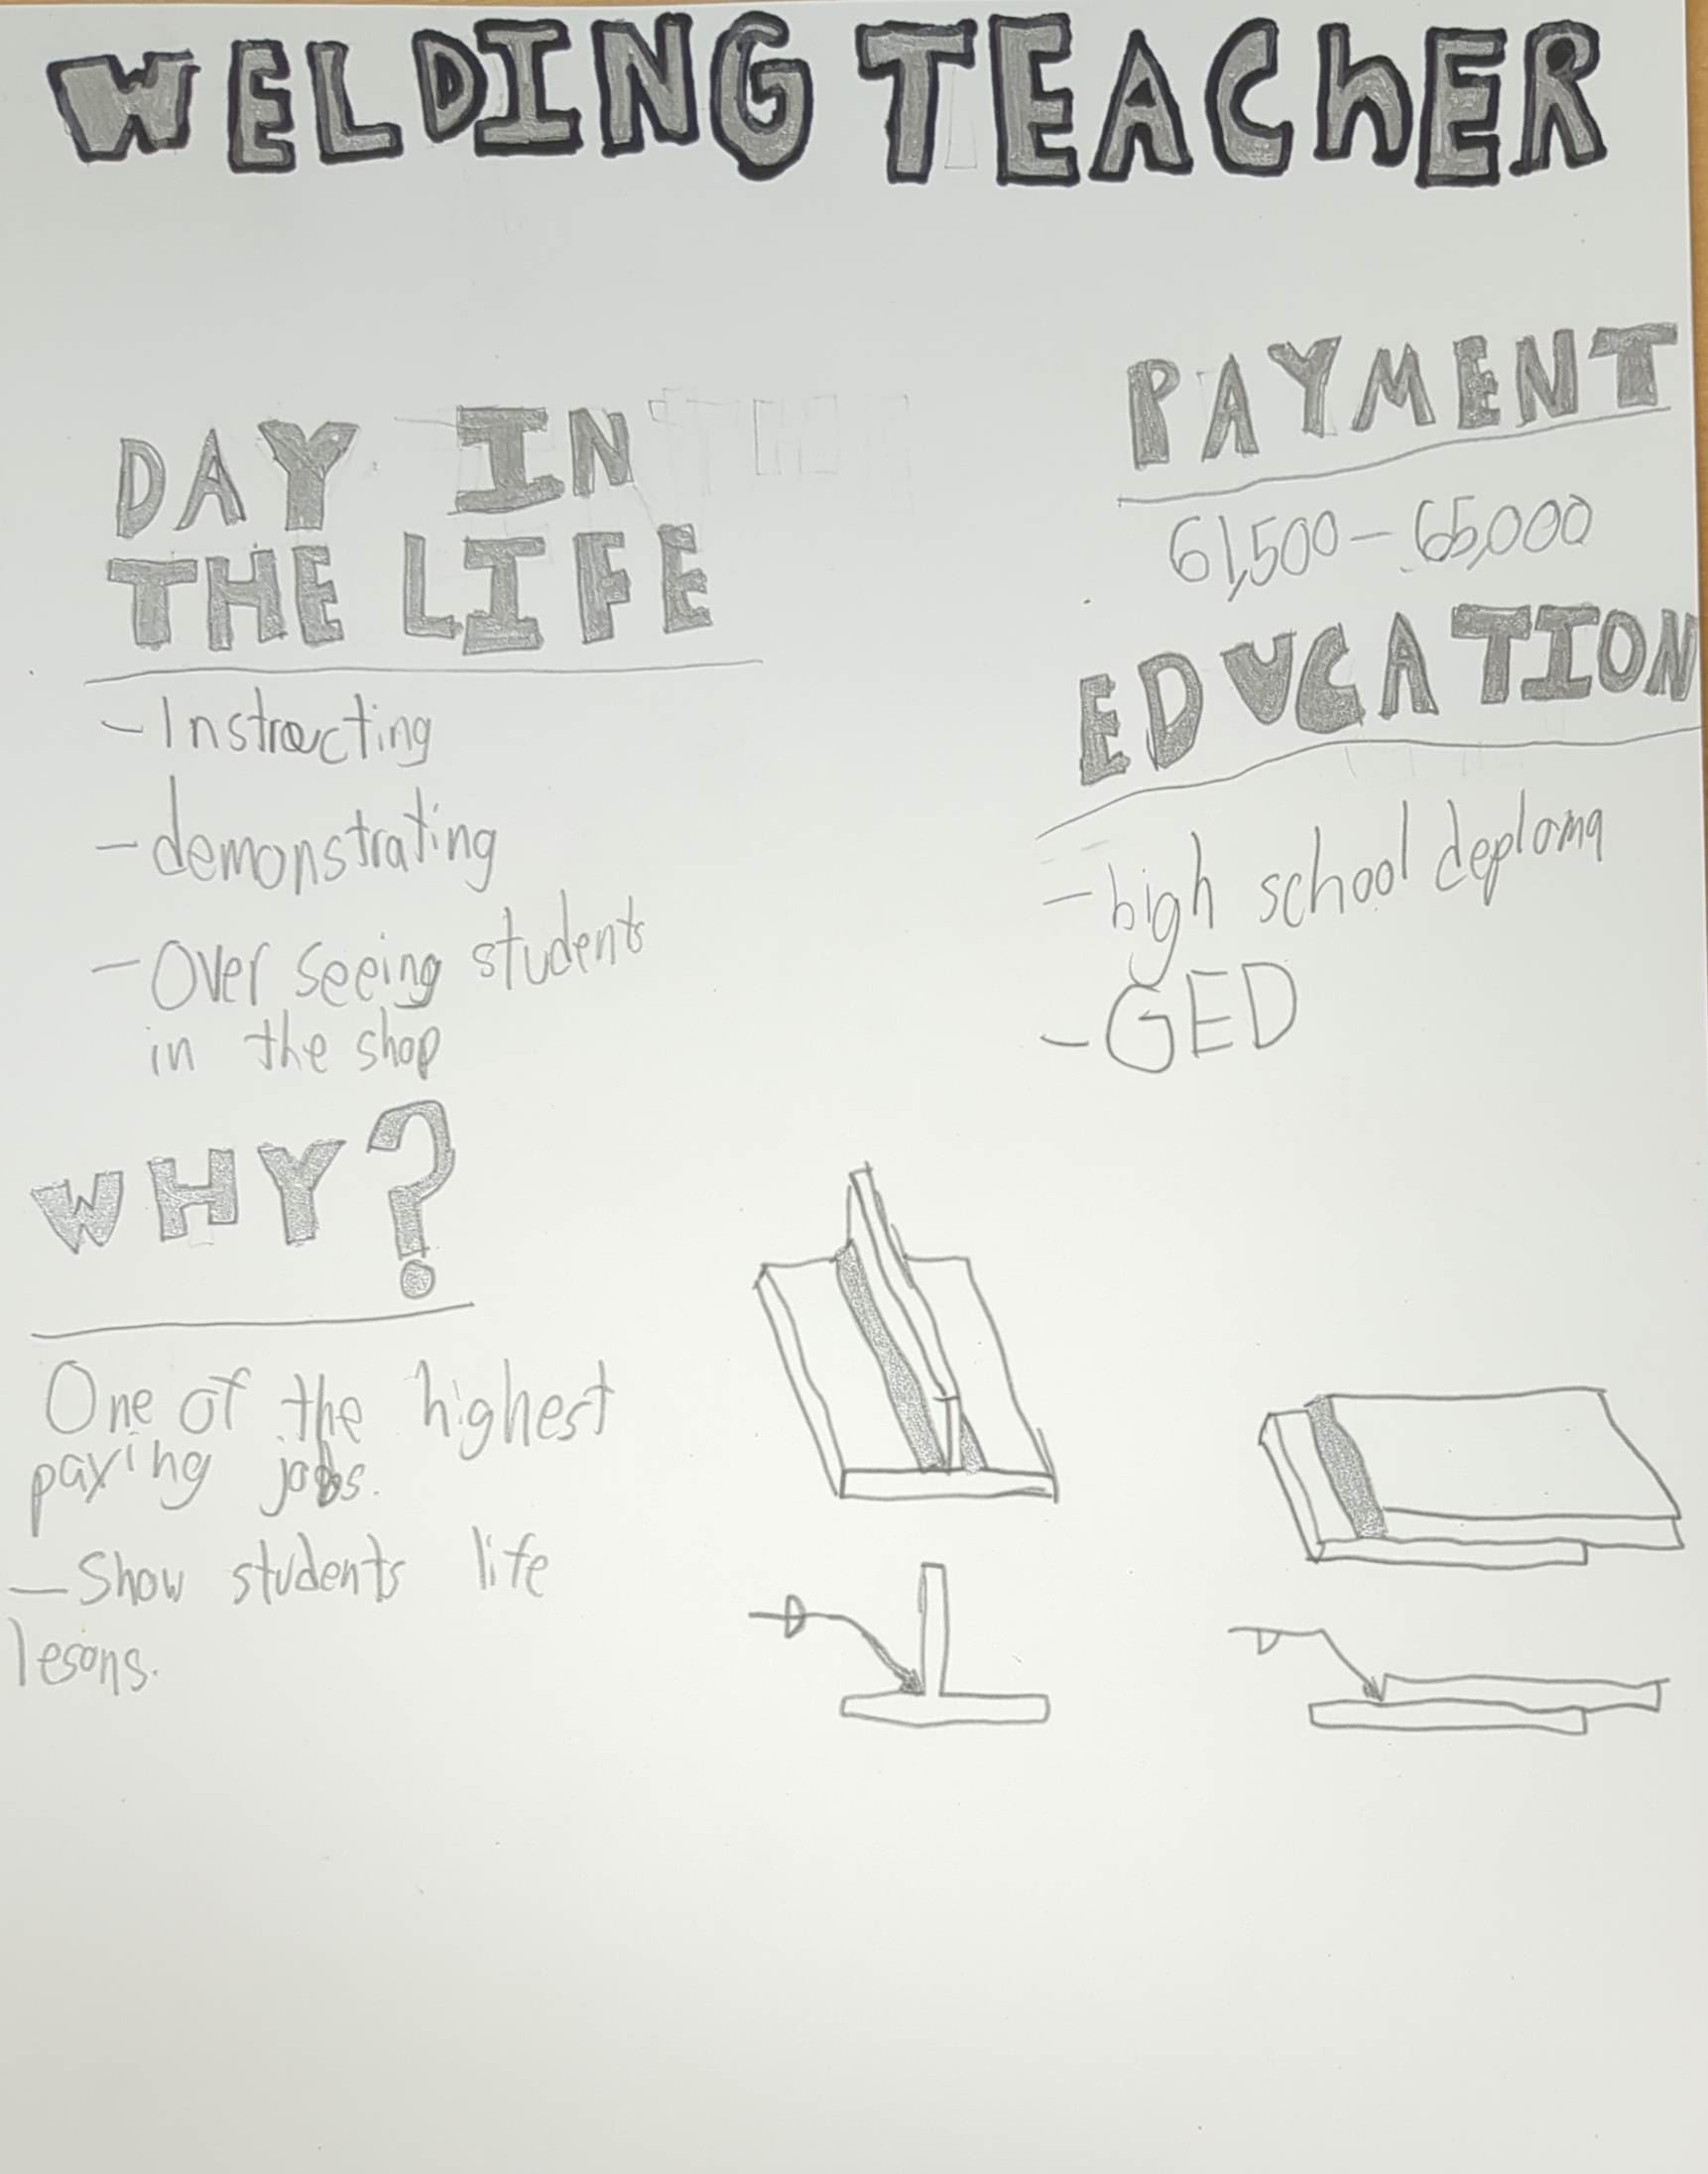 WELDING TEACHER
DAY IN
THE LIFE
- Instructing
- demonstrating
- Over seeing students
in the shop
WHY?
One of the highest
paying jobs.
- Show students life
lesons.
PAYMENT
61,500 - 65,000
EDUCATION
- high school deploma
- GED